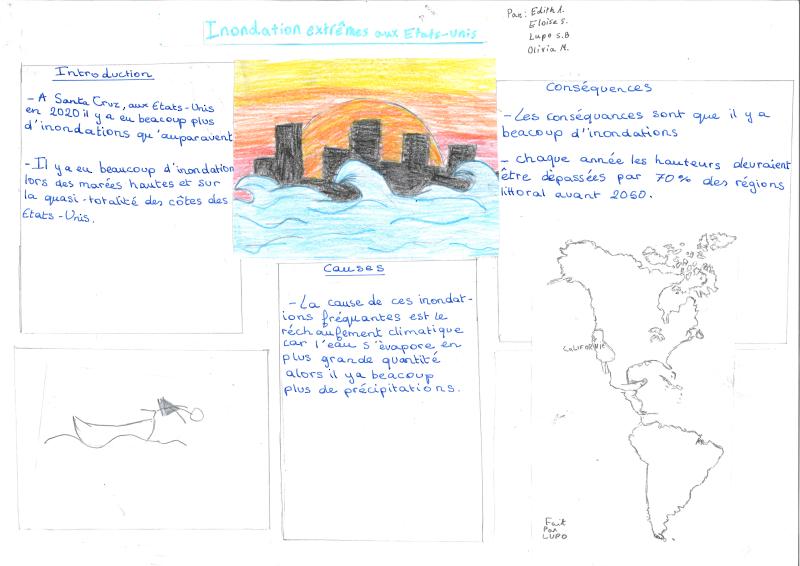 Inondation extrêmes aux Etats-Unis
Par: Edith A.
Eloise S.
Lupo S.B
Olivia M.
Introduction
- A Santa Cruz, aux Etats-Unis
en 2020 il y a eu beacoup plus
d'inondations qu'auparavent
- Il y a eu beaucoup d'inondation
lors des marées hautes et sur
la quasi-totalité des côtes des
Etats-Unis.
Causes
- La cause de ces inondat-
ions fréquantes est le
réchaufement climatique
car l'eau s'évapore en
plus grande quantité
alors il y a beacoup
plus de précipitations.
Conséquences
- Les conséquances sont que il y a
beacoup d'inondations
- chaque année les hauteurs devraient
être dépassées par 70% des régions
littoral avant 2050.
CALIFORNIE
Fait
Par
LUPO